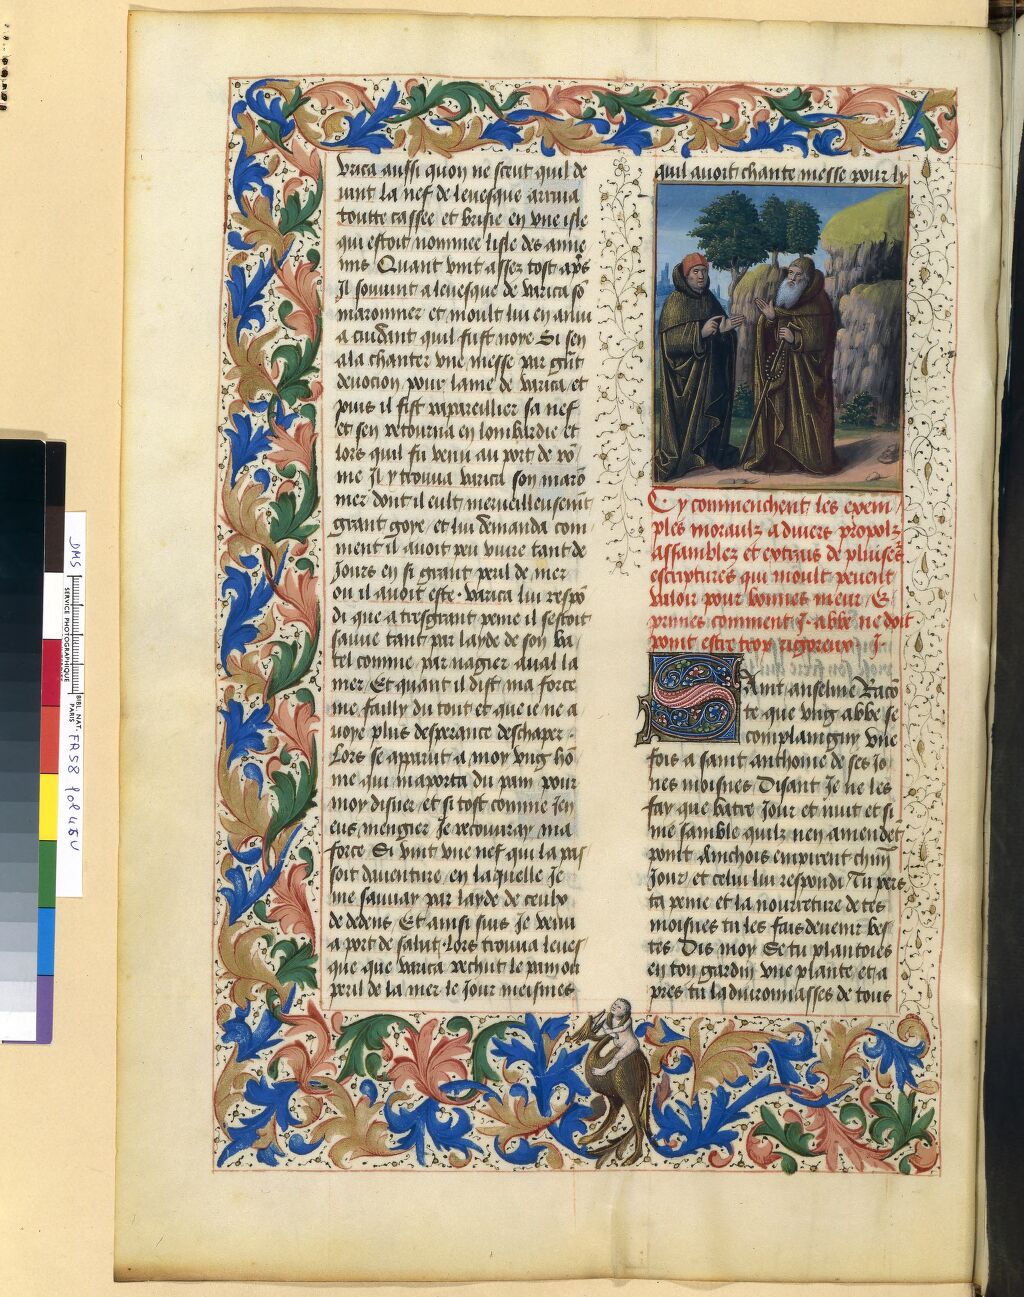 varica aussi quon ne sceut quil de
uint la nef de leuesque arriua
toutte cassee et brisie en vne isle
qui estoit nommee lisle des anne
mis Quant vint assez tost apres
Il souuint a leuesque de varica so
maronner et moult lui en anuia
a cuidant quil fust noye Si sen
ala chanter vne messe par grant
deuocion pour lame de varica et
puis il fist rapareillier sa nef
et sen retourna en lombardie et
lors quil fu venu au port de ro
me Il y trouua varica son maro
mer dont il eult merueilleusemnt
grant ioye et lui demanda com
ment il auoit peu viure tant de
Iours en si grant peril de mer
ou il auoit este. varica lui respo
di que a tresgrant peine il sestoit
sauue tant par layde de son ba
tel comme par nagier aual la
mer Et quant il dist ma force
me failly du tout et que ie ne a
uoye plus desperance deschaper
Lors se aparut a moy vng ho
me qui maporta du pain pour
moy disner et si tost comme Ien
eus mengier Je recouuray ma
force Si vint vne nef qui la pas
soit dauenture en laquelle Je
me sauuay par layde de ceulx
de dedens Et ainsi suis Je venu
a port de salut. Lors trouua leues
que que varica rechut le pain ou
peril de la mer le Jour meismes
quil auoit chante messe pour ly
Cy commenchent les exem
ples moraulz a diuers propolz
assamblez et extrais de pluises
escriptures qui moult peuent
valoir pour bonnes meurs Et
prmes comment I. abbe ne doit
point estre trop rigoreux I
Saint anselme Raco
te que vng abbe se
complaingny vne
fois a saint anthoine de ses Jo
nes moisnes Disant Je ne les
fay que batre Jour et nuit et si
me samble quilz nen amendet
point Ainchois empirent chun
Jour et celui lui respondi Tu pers
ta peine et la nourreture de tes
moisnes tu les fais deuenir bes
tes Dis moy Se tu plantoies
en ton gardin vne plante et a
pres tu laduironnasses de tous
DMS
SERVICE PHOTOGRAPHIQUE
BIBL. NAT.
PARIS
FR 58 fol 48 v